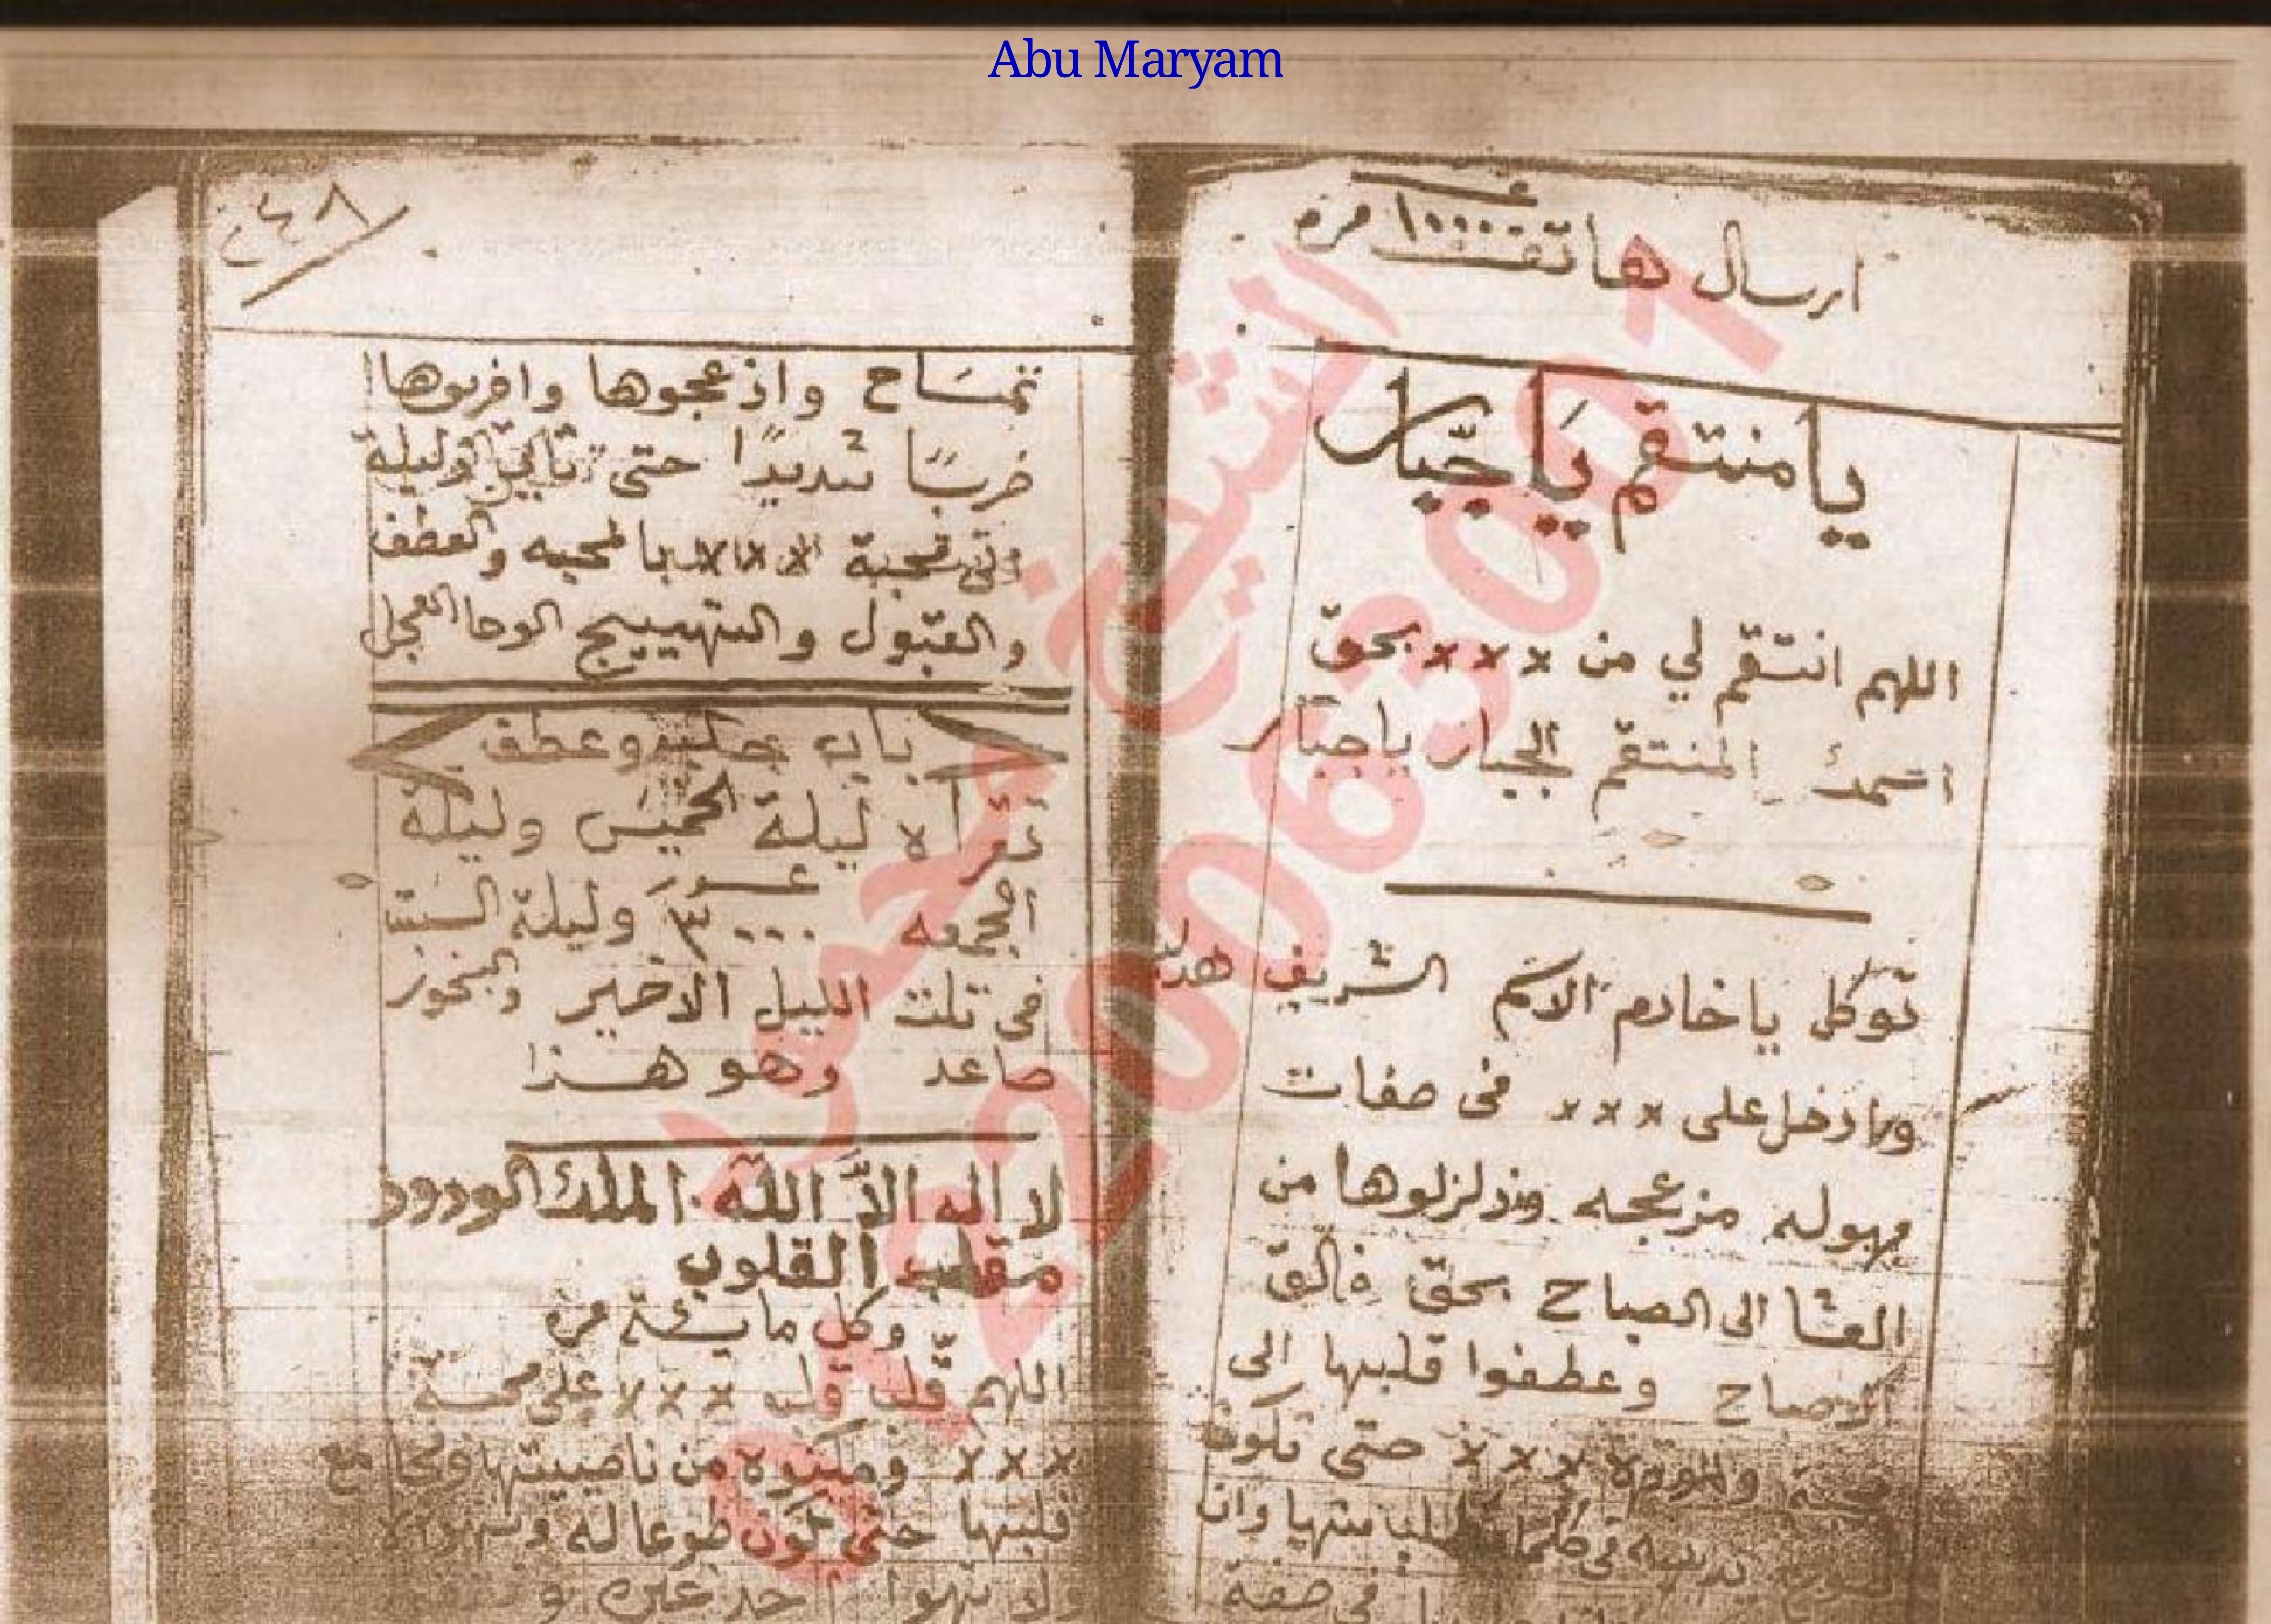 Abu Maryam
ارسال هاتف ١٠٠٠٠ مره
يا منتقم يَا جبّار
اللهم انتقم لي من ××× بحق
اسمك المنتقم الجبار يا جبّار
توكل يا خادم الاسم الشريف هذا
وادخل على ××× فى صفات
مهوله مزعجه وزلزلوها من
العشا الى الصباح بحق فالق
الاصباح وعطفوا قلبها الى
محبة والمودة ××× حتى تكون
منها وان
فى صفة
تمسَاح واذعجوها واضربوها
ضربًا شديدًا حتى تأتي ذليلة
محبة ××× بالمحبه والعطف
والقبول والتهييج الوحا العجل
باب جلب وعطف
تقرأه ليلة الخميس وليلة
الجمعه ٣٠٠٠ وليلة السبت
فى تلت الليل الاخير والبخور
صاعد وهو هذا
لا اله الاَّ الله الملك الودود
مقلب القلوب
وكل مايئة مره
اللهم قلب قلب ××× على محبة
××× ومكنوه من ناصيتها ومجامع
قلبها حتى تكون طوعا له و
ولا تهوا احد غيره و
الشيخ محمود